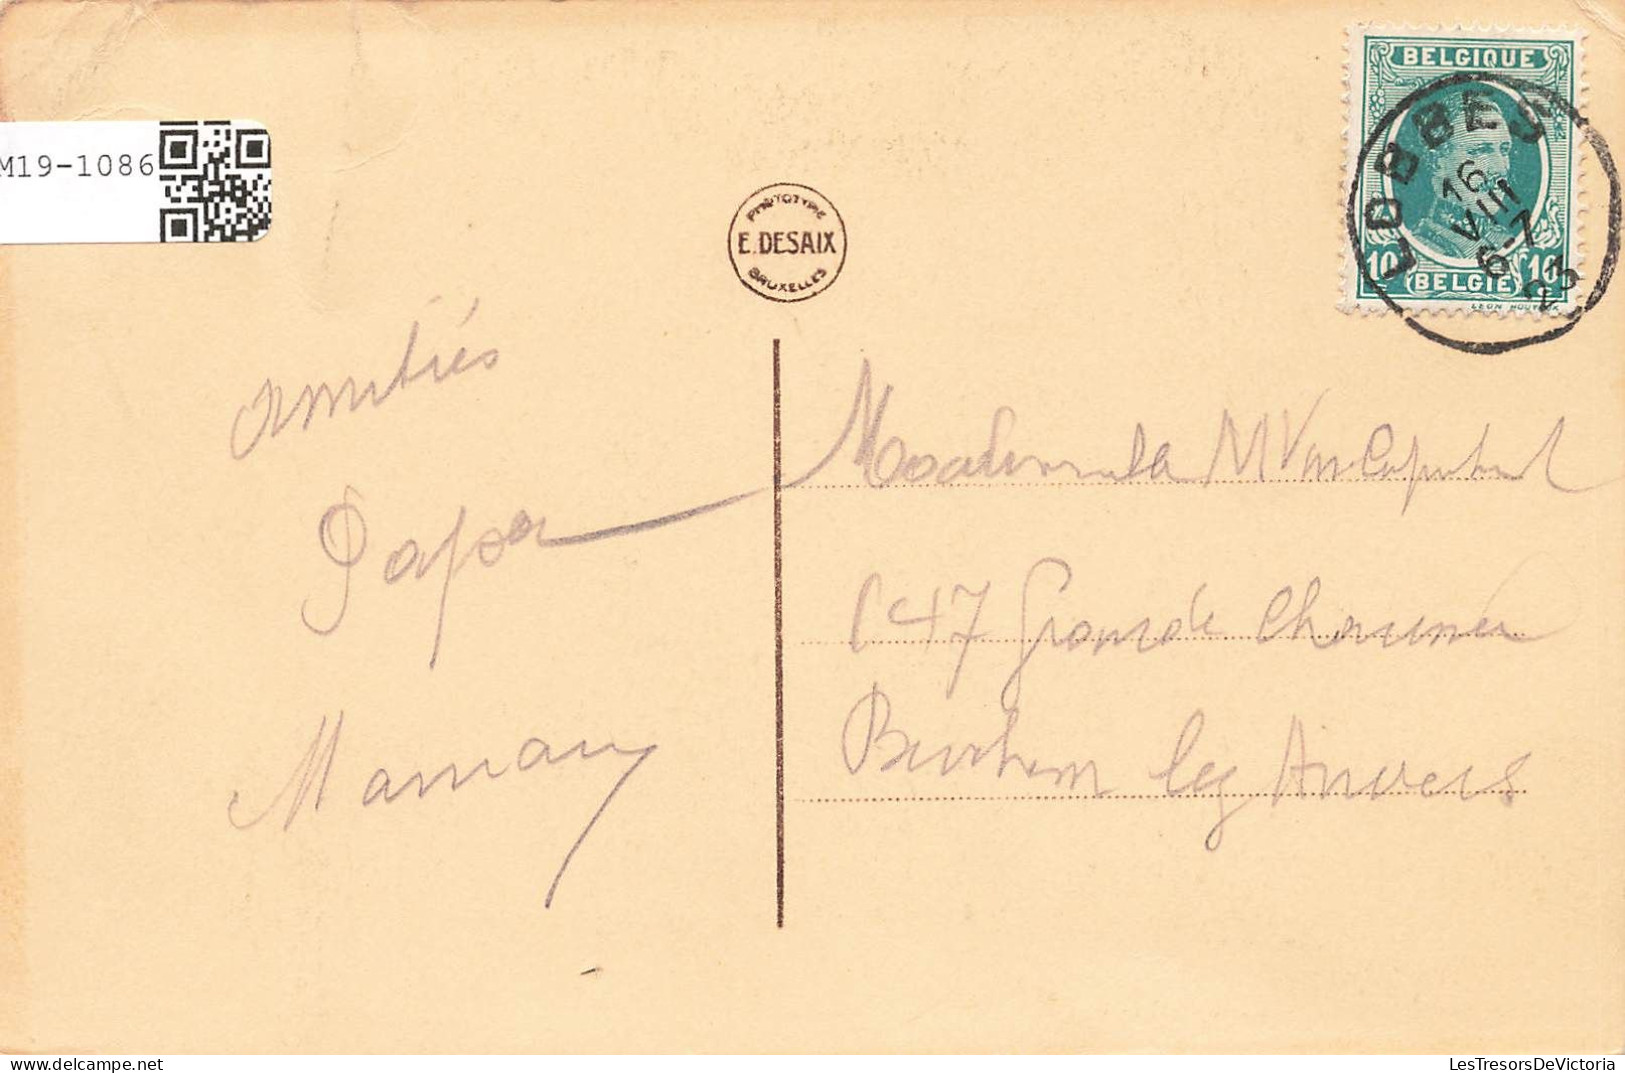 BELGIQUE
LOBBES
16
VIII
6-7
23
10 BELGIE 10
M19-1086
PHOTOTYPIE
E. DESAIX
BRUXELLES
Amitiés
Papa
Maman
Mademoiselle M Van
147 Grande Chaussée
Berchem lez Anvers
LesTresorsDeVictoria